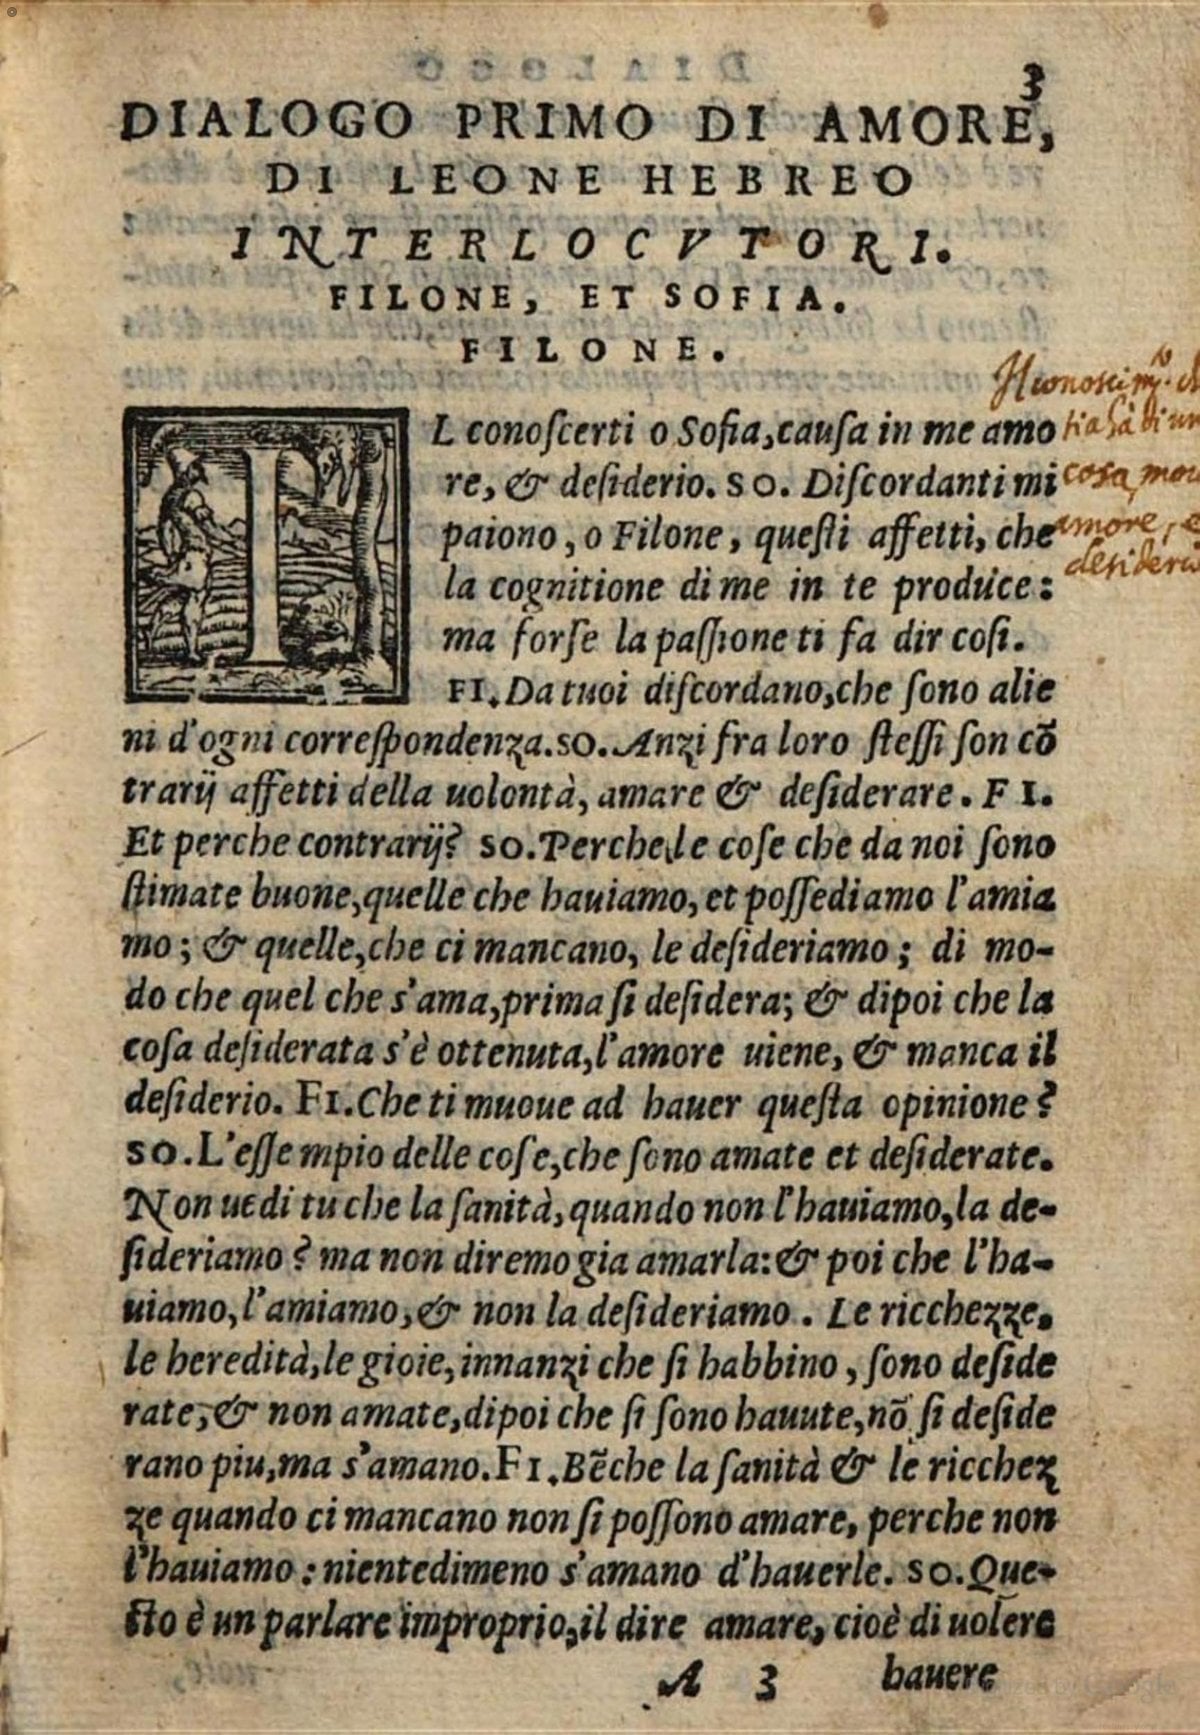 3
DIALOGO PRIMO DI AMORE,
DI LEONE HEBREO
INTERLOCVTORI.
FILONE, ET SOFIA.
FILONE.
IL conoſcerti o Sofia, cauſa in me amo
re, & deſiderio. SO. Diſcordanti mi
paiono, o Filone, queſti affetti, che
la cognitione di me in te produce:
ma forſe la paſsione ti fa dir coſi.
FI. Da tuoi diſcordano, che ſono alie
ni d'ogni correſpondenza. SO. Anzi fra loro ſteſſi ſon cõ
trarij affetti della uolontà, amare & deſiderare. FI.
Et perche contrarij? SO. Perche le coſe che da noi ſono
ſtimate buone, quelle che hauiamo, et poſſediamo l'amia
mo; & quelle, che ci mancano, le deſideriamo; di mo-
do che quel che s'ama, prima ſi deſidera; & dipoi che la
coſa deſiderata s'è ottenuta, l'amore uiene, & manca il
deſiderio. FI. Che ti muoue ad hauer queſta opinione?
SO. L'eſſempio delle coſe, che ſono amate et deſiderate.
Non uedi tu che la ſanità, quando non l'hauiamo, la de-
ſideriamo? ma non diremo gia amarla: & poi che l'ha-
uiamo, l'amiamo, & non la deſideriamo. Le ricchezze.
le heredità, le gioie, innanzi che ſi habbino, ſono deſide
rate, & non amate, dipoi che ſi ſono hauute, nõ ſi deſide
rano piu, ma s'amano. FI. Bẽche la ſanità & le ricchez
ze quando ci mancano non ſi poſſono amare, perche non
l'hauiamo: nientedimeno s'amano d'hauerle. SO. Que-
ſto è un parlare improprio, il dire amare, cioè di uolere
A 3 hauere
coſa
amore, e
deſiderio